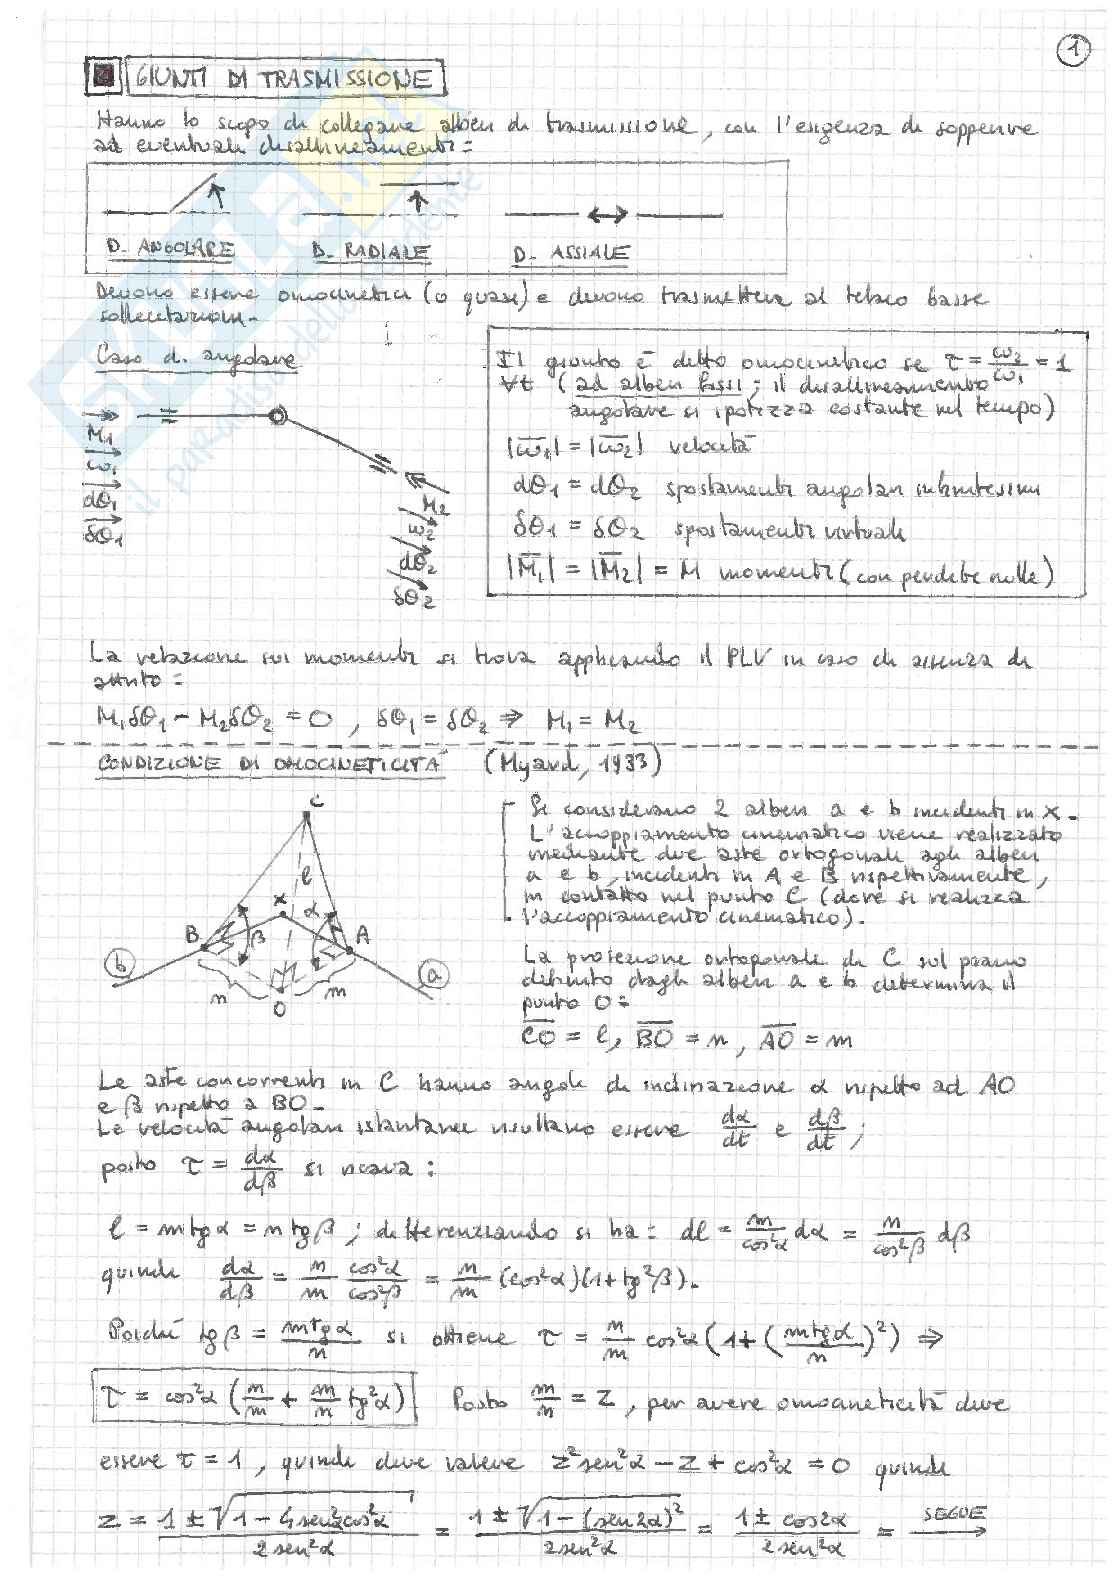 1
GIUNTI DI TRASMISSIONE
Hanno lo scopo di collegare alberi di trasmissione, con l'esigenza di sopperire
ad eventuali disallineamenti:
D. ANGOLARE D. RADIALE D. ASSIALE
Devono essere omocinetici (o quasi) e devono trasmettere al telaio basse
sollecitazioni.
Caso d. angolare
M1
ω1
dθ1
δθ1
M2
ω2
dθ2
δθ2
Il giunto è detto omocinetico se τ = ω2/ω1 = 1
∀t (ad alberi fissi; il disallineamento
angolare si ipotizza costante nel tempo)
|ω1| = |ω2| velocità
dθ1 = dθ2 spostamenti angolari infinitesimi
δθ1 = δθ2 spostamenti virtuali
|M1| = |M2| = M momenti (con perdite nulle)
La relazione sui momenti si trova applicando il PLV in caso di assenza di
attrito:
M1δθ1 - M2δθ2 = 0 , δθ1 = δθ2 ⇒ M1 = M2
CONDIZIONE DI OMOCINETICITÀ (Myard, 1933)
C
l
x
α
B
β
A
b
a
n
m
O
Si considerano 2 alberi a e b incidenti in X.
L'accoppiamento cinematico viene realizzato
mediante due aste ortogonali agli alberi
a e b, incidenti in A e B rispettivamente,
in contatto nel punto C (dove si realizza
l'accoppiamento cinematico).
La proiezione ortogonale di C sul piano
definito dagli alberi a e b determina il
punto O:
CO = l, BO = n, AO = m
Le aste concorrenti in C hanno angoli di inclinazione α rispetto ad AO
e β rispetto a BO.
Le velocità angolari istantanee risultano essere dα/dt e dβ/dt ;
posto τ = dα/dβ si ricava:
l = m tg α = n tg β ; differenziando si ha: dl = m/cos²α dα = n/cos²β dβ
quindi dα/dβ = n/m cos²α/cos²β = n/m (cos²α)(1+tg²β).
Poiché tg β = m tg α/n si ottiene τ = n/m cos²α (1+(m tg α/n)²) ⇒
τ = cos²α (n/m + m/n tg²α) Posto m/n = z, per avere omocineticità deve
essere τ = 1, quindi deve valere z²sen²α - z + cos²α = 0 quindi
z = 1 ± √1 - 4sen²αcos²α / 2sen²α = 1 ± √1 - (sen2α)² / 2sen²α = 1 ± cos2α / 2sen²α = SEGUE →
SKUOLA.net
il paradiso dello studente